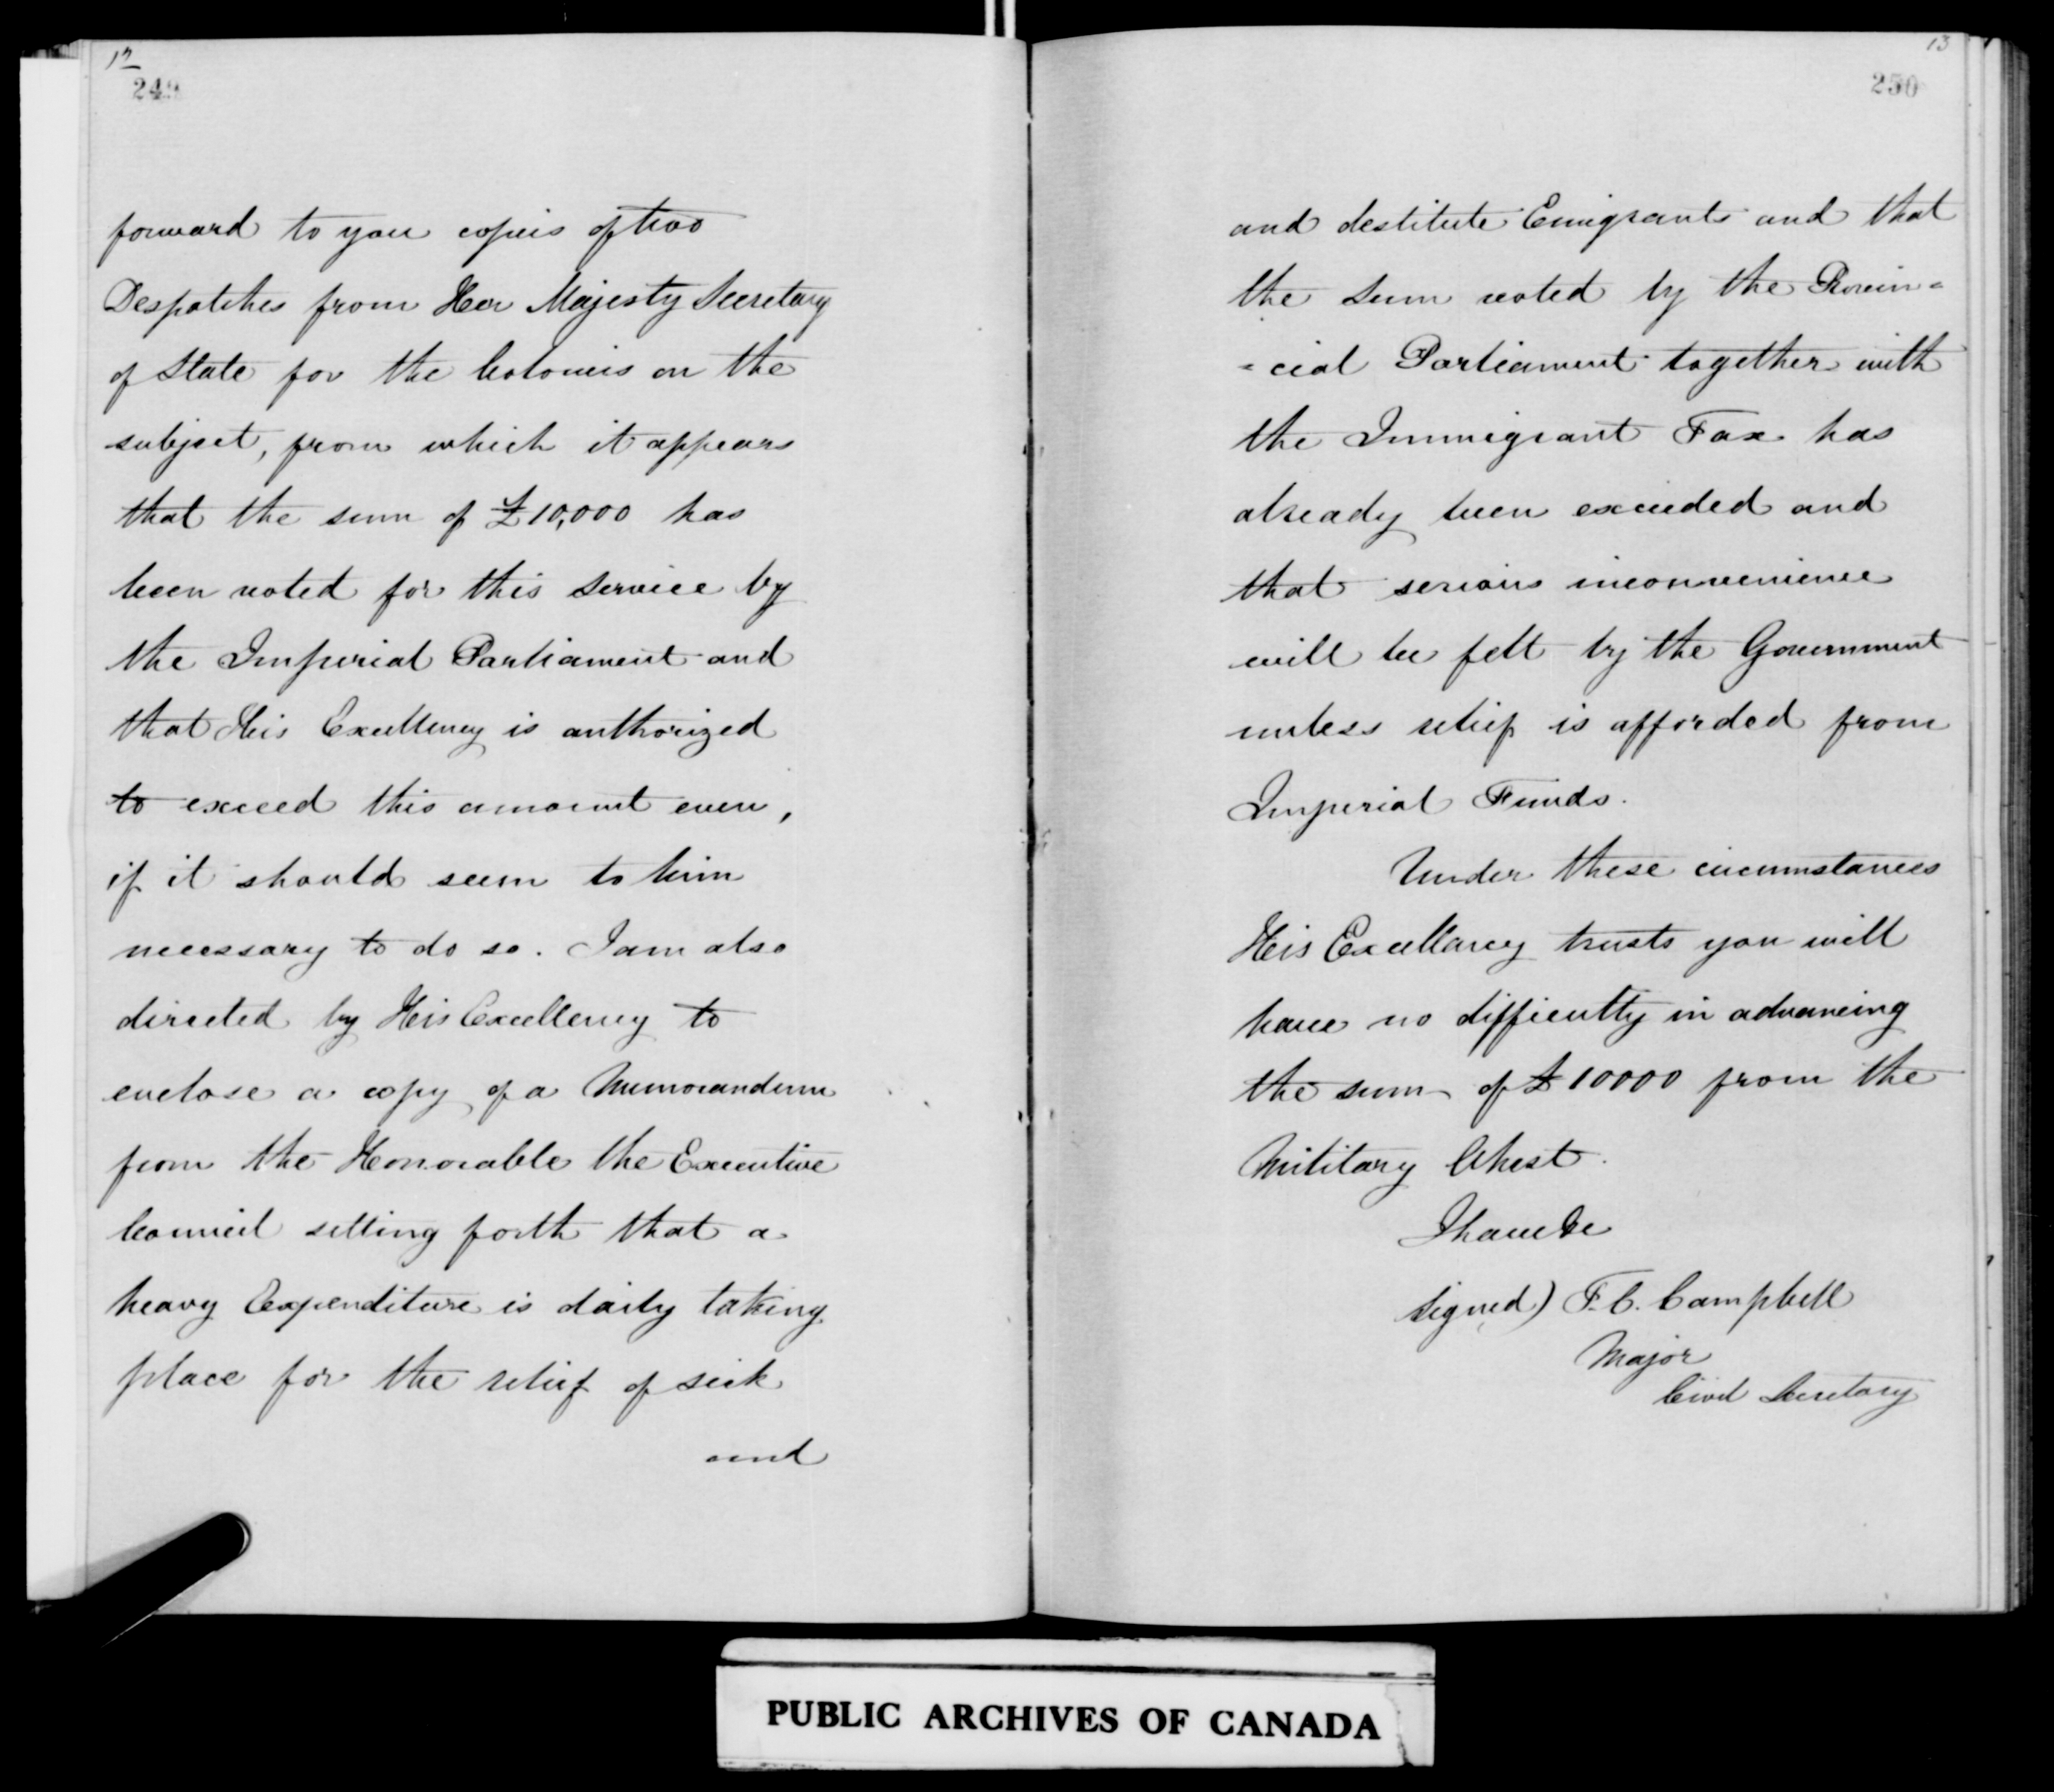 12
249
forward to you copies of two
Despatches from Her Majesty Secretary
of State for the Colonies on the
subject, from which it appears
that the sum of £10,000 has
been voted for this service by
the Imperial Parliament and
that His Excellency is authorized
to exceed this amount even,
if it should seem to him
necessary to do so. I am also
directed by His Excellency to
enclose a copy of a Memorandum
from the Honorable the Executive
Council setting forth that a
heavy Expenditure is daily taking
place for the relief of sick
and
13
250
and destitute Emigrants and that
the sum voted by the Provin=
=cial Parliament together with
the Immigrant Tax has
already been exceeded and
that serious inconvenience
will be felt by the Government
unless relief is afforded from
Imperial Funds.
Under these circumstances
His Excellency trusts you will
have no difficulty in advancing
the sum of £10000 from the
Military Chest.
I have &c
signed) F. C. Campbell
Major
Civil Secretary
PUBLIC ARCHIVES OF CANADA